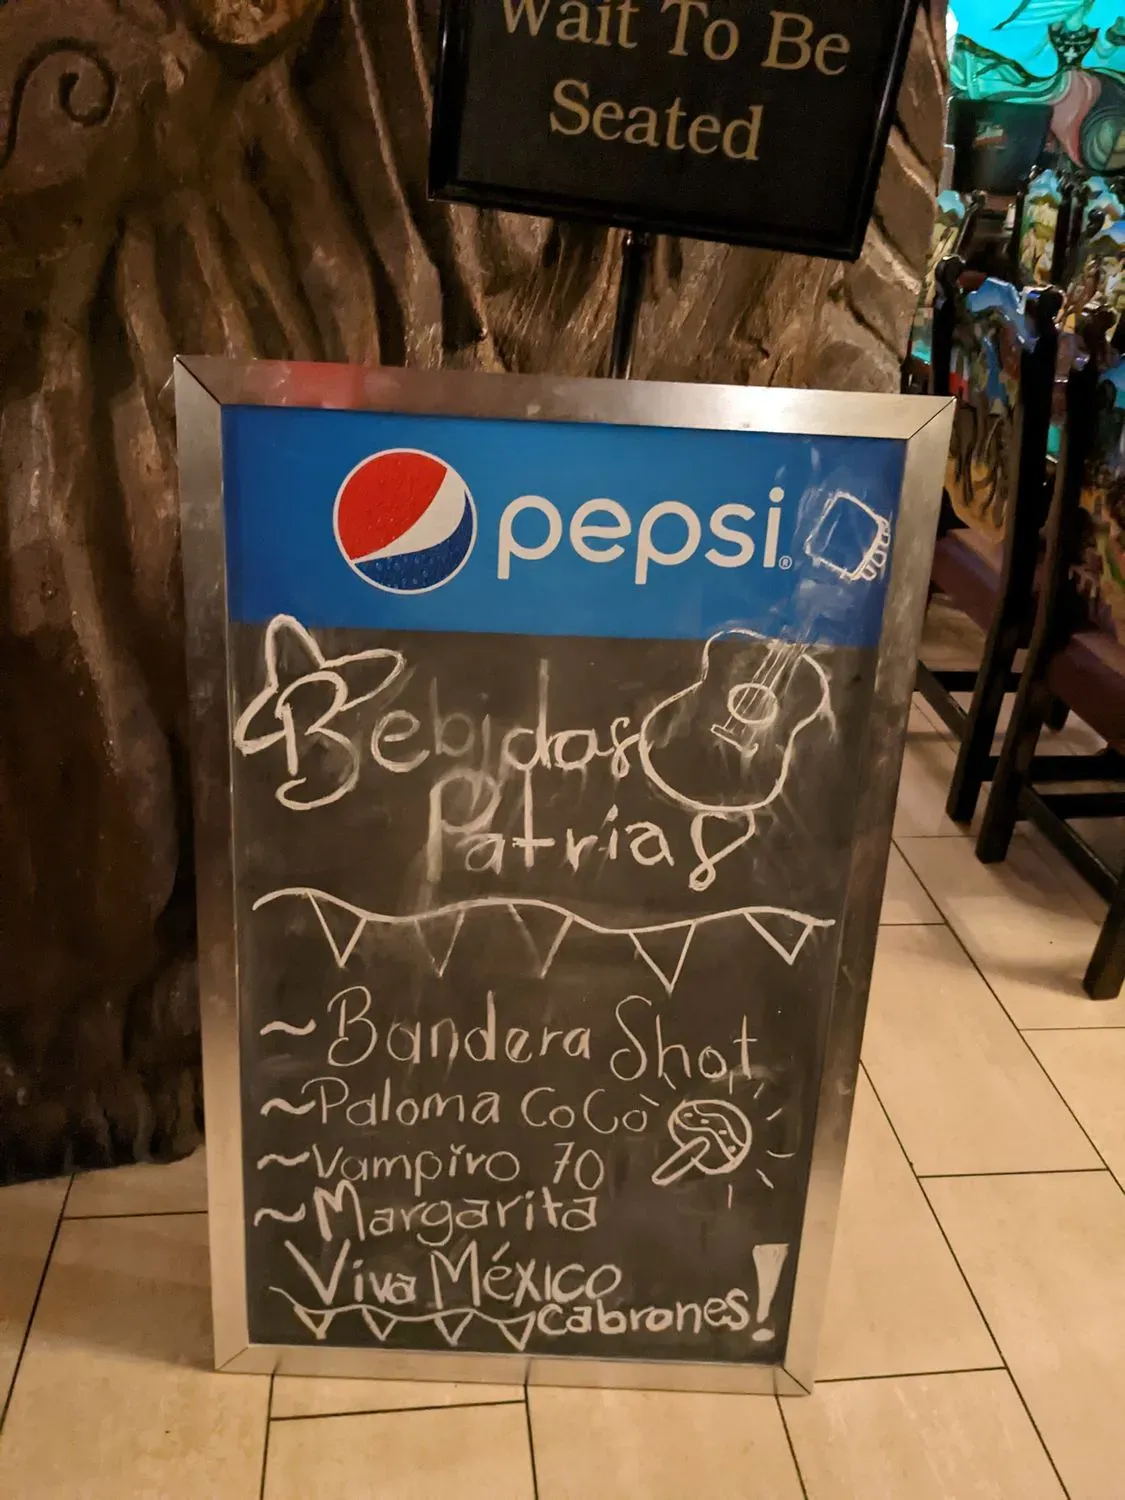 Wait To Be
Seated
pepsi®
Bebidas
Patrias
~Bandera Shot
~Paloma CoCo
~Vampiro 70
~Margarita
Viva México
cabrones!